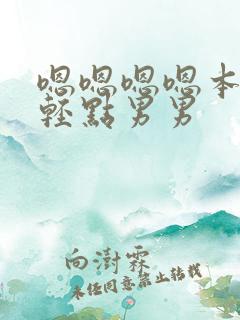 嗯嗯嗯嗯本
輕點男男
向澍霖
未经同意禁止转载